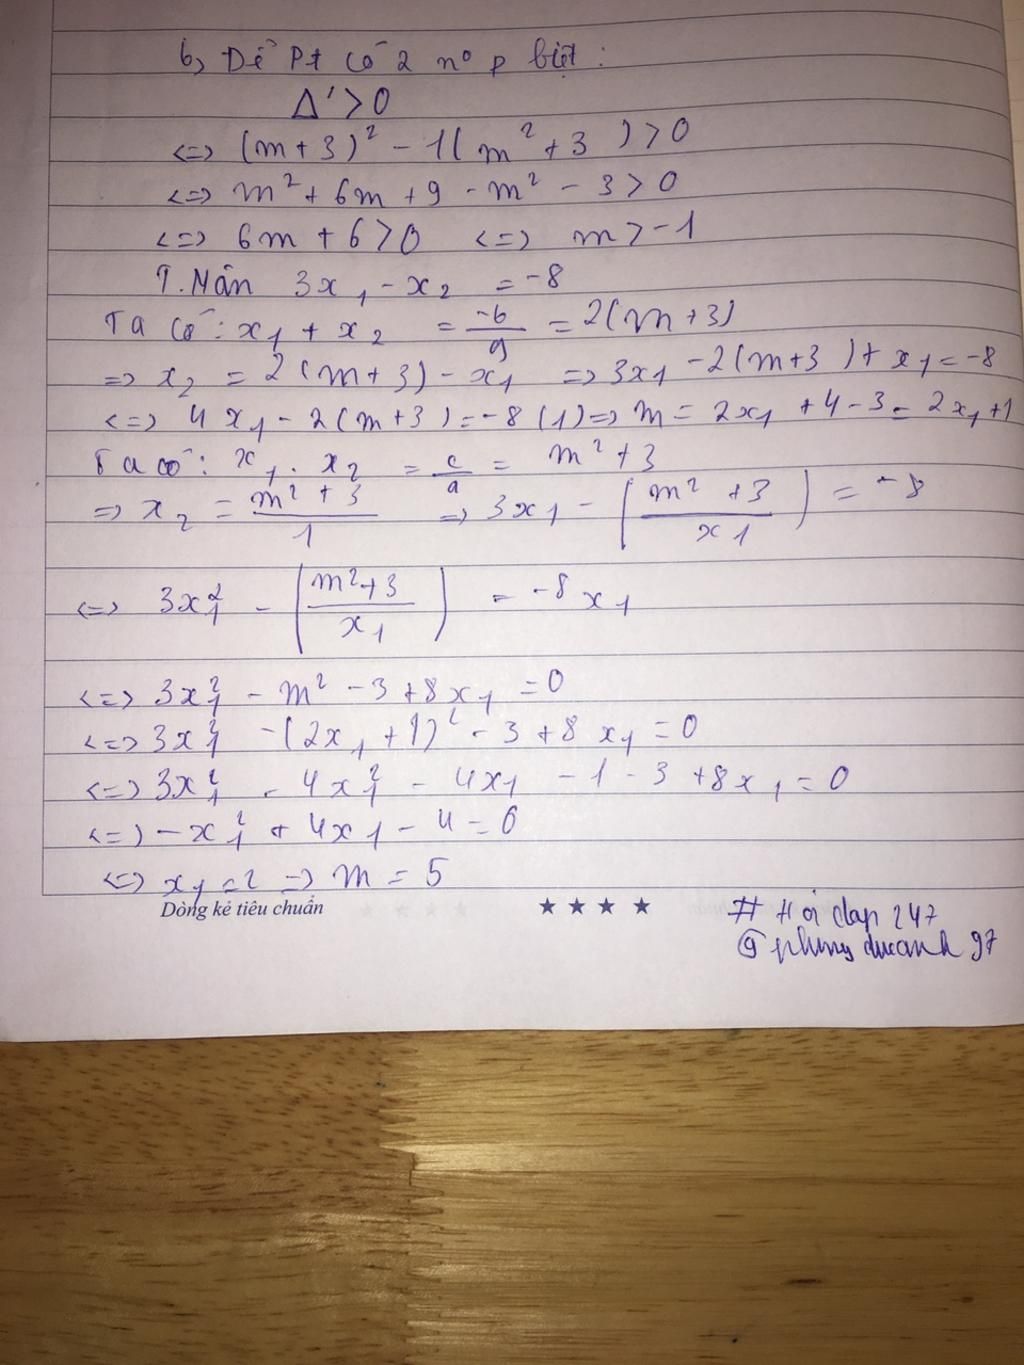 b, Để Pt có 2 nº p biệt :
Δ' > 0
<=> (m + 3)² - 1( m² + 3 ) > 0
<=> m² + 6m + 9 - m² - 3 > 0
<=> 6m + 6 > 0 <=> m > -1
T. Mãn 3x₁ - x₂ = -8
Ta có : x₁ + x₂ = -b/a = 2(m + 3)
=> x₂ = 2(m+3) - x₁ => 3x₁ - 2(m+3) + x₁ = -8
<=> 4x₁ - 2(m+3) = -8 (1) => m = 2x₁ + 4 - 3 = 2x₁ + 1
Ta có : x₁ . x₂ = c/a = m² + 3
=> x₂ = (m² + 3)/1 => 3x₁ - ((m² + 3)/x₁) = -8
<=> 3x₁² - ((m² + 3)/x₁) = -8x₁
<=> 3x₁² - m² - 3 + 8x₁ = 0
<=> 3x₁² - (2x₁ + 1)² - 3 + 8x₁ = 0
<=> 3x₁² - 4x₁² - 4x₁ - 1 - 3 + 8x₁ = 0
<=> -x₁² + 4x₁ - 4 = 0
<=> x₁ = 2 => m = 5
Dòng kẻ tiêu chuẩn ★ ★ ★ ★
# Hỏi đap 247
@ phungducanh 97